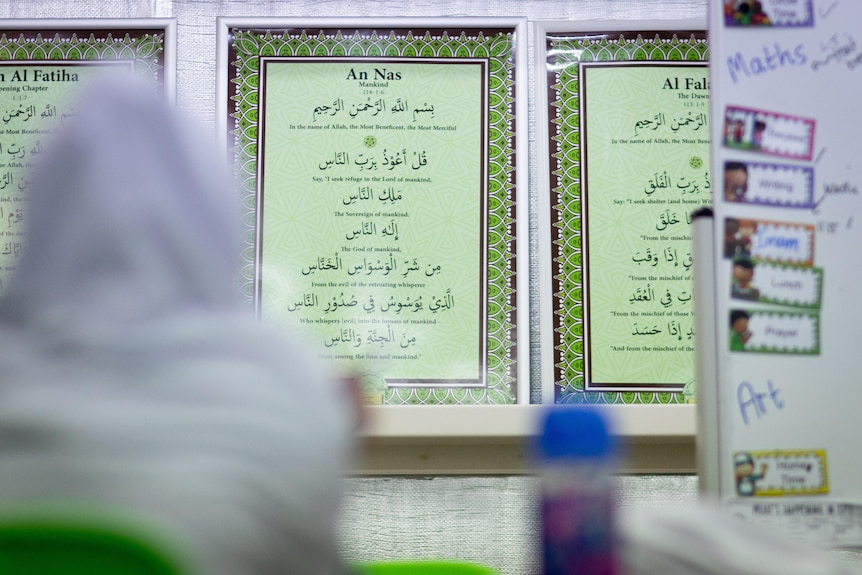 n Al Fatiha
pening Chapter
1:1-7
An Nas
Mankind
114:1-6
بِسْمِ اللَّهِ الرَّحْمَنِ الرَّحِيمِ
In the name of Allah, the Most Beneficent, the Most Merciful
قُلْ أَعُوذُ بِرَبِّ النَّاسِ
Say, "I seek refuge in the Lord of mankind,
مَلِكِ النَّاسِ
The Sovereign of mankind.
إِلَهِ النَّاسِ
The God of mankind,
مِن شَرِّ الْوَسْوَاسِ الْخَنَّاسِ
From the evil of the retreating whisperer
الَّذِي يُوَسْوِسُ فِي صُدُورِ النَّاسِ
Who whispers [evil] into the breasts of mankind -
مِنَ الْجِنَّةِ وَالنَّاسِ
From among the jinn and mankind."
Al Fala
The Dawn
113:1-5
الرَّحْمَنِ الرَّحِيمِ
In the name of Allah, the Most Benefi
بِرَبِّ الْفَلَقِ
Say: "I seek shelter (and home) With
خَلَقَ
"From the mischief
إِذَا وَقَبَ
"From the mischief of
فِي الْعُقَدِ
"From the mischief of those
إِذَا حَسَدَ
"And from the mischief of the
Time
Maths
Writing
Imam
Lunch
Prayer
Art
Home
Time